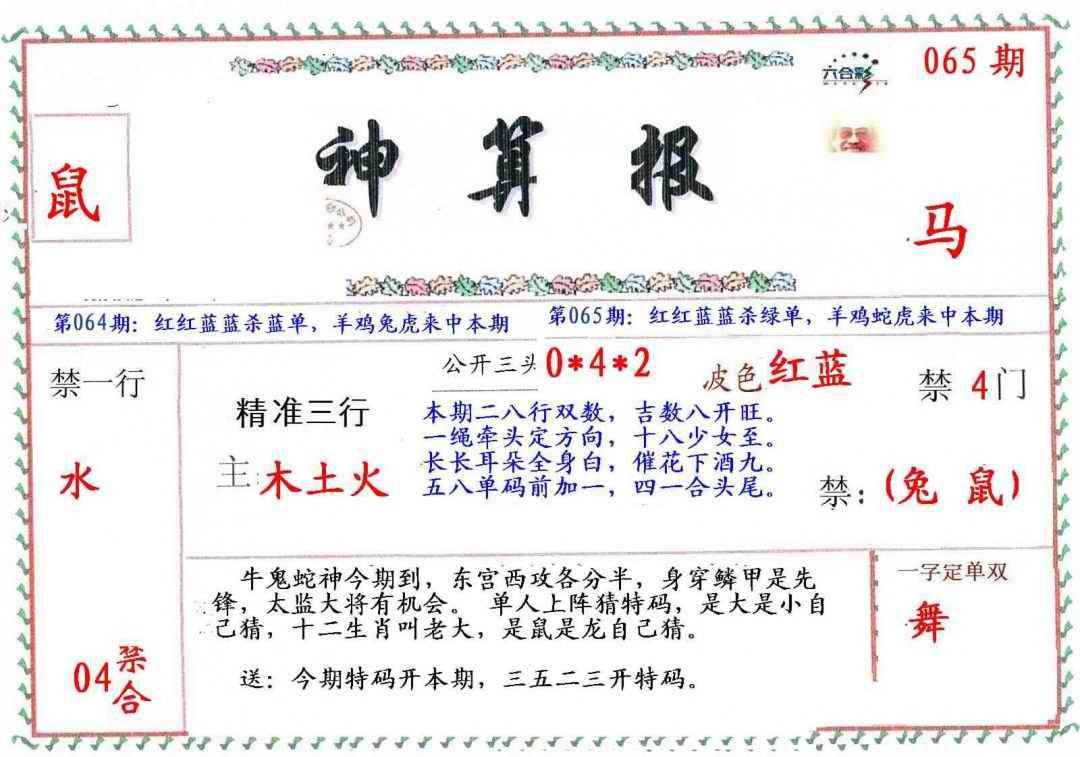 065期
六合彩
神算报
鼠
马
第064期：红红蓝蓝杀蓝单，羊鸡兔虎来中本期
第065期：红红蓝蓝杀绿单，羊鸡蛇虎来中本期
禁一行
水
04禁合
公开三头0*4*2
波色红蓝
禁4门
精准三行
主:木土火
本期二八行双数，吉数八开旺。
一绳牵头定方向，十八少女至。
长长耳朵全身白，催花下酒九。
五八单码前加一，四一合头尾。
禁:(兔 鼠)
牛鬼蛇神今期到，东宫西攻各分半，身穿鳞甲是先
锋，太监大将有机会。 单人上阵猜特码，是大是小自
己猜，十二生肖叫老大，是鼠是龙自己猜。
送：今期特码开本期，三五二三开特码。
一字定单双
舞